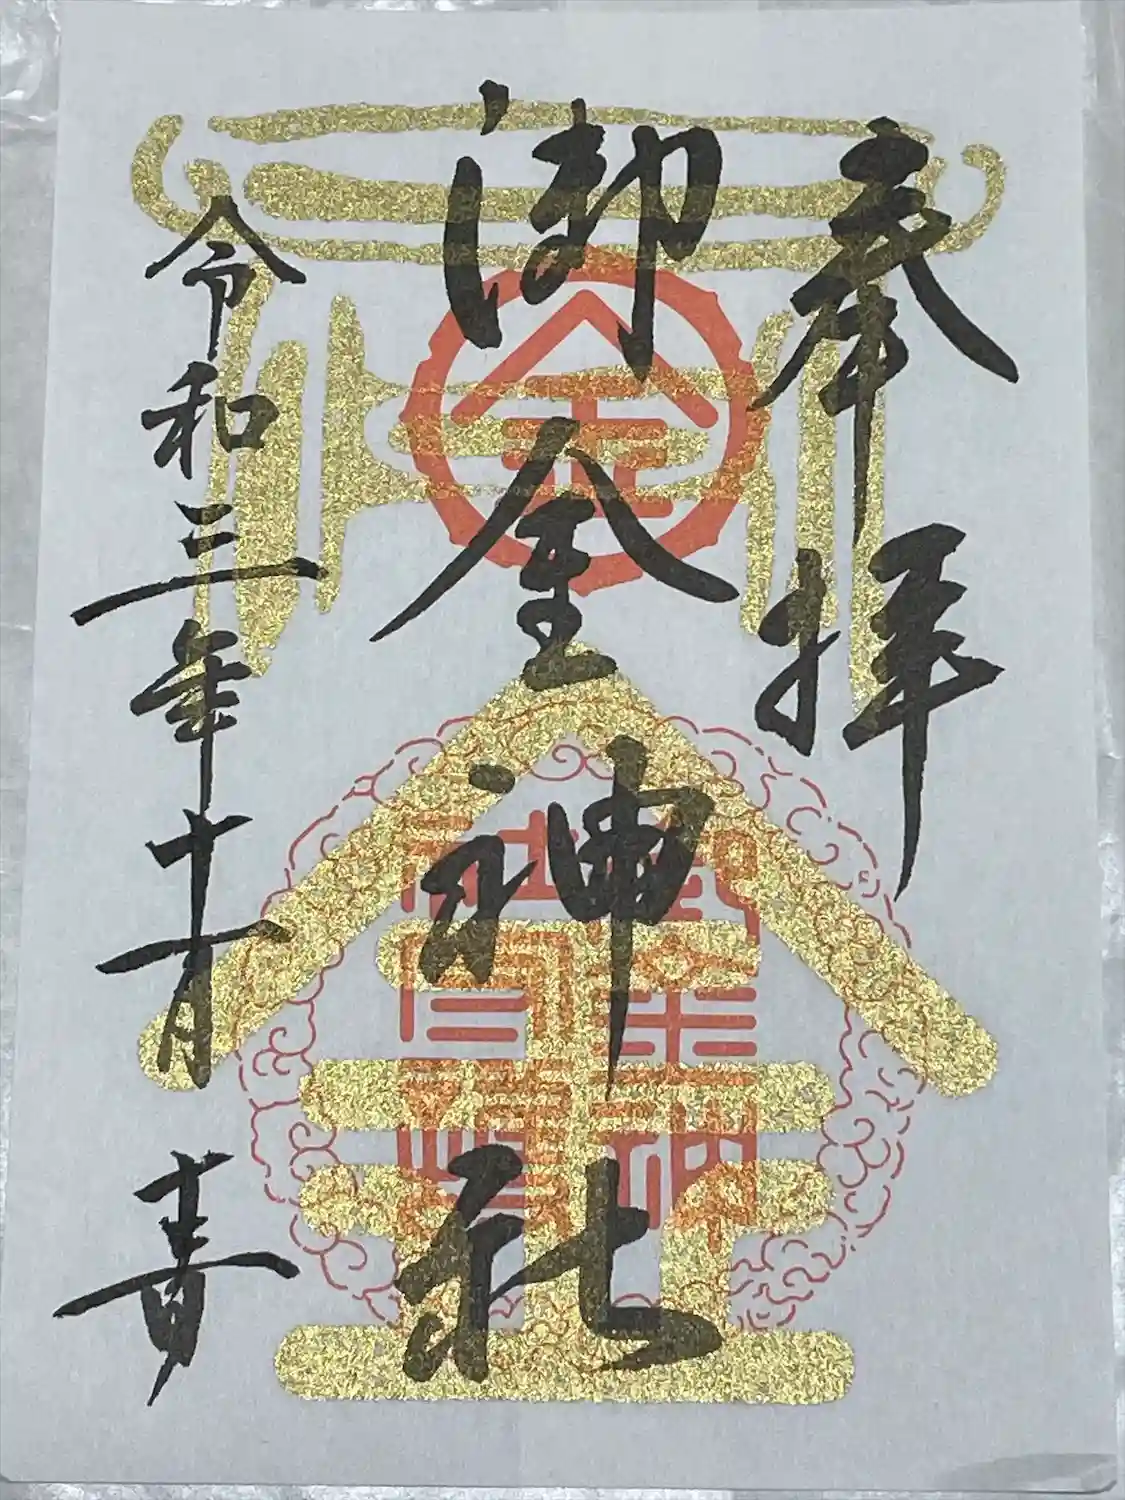 奉拝
御金神社
令和三年十一月吉日